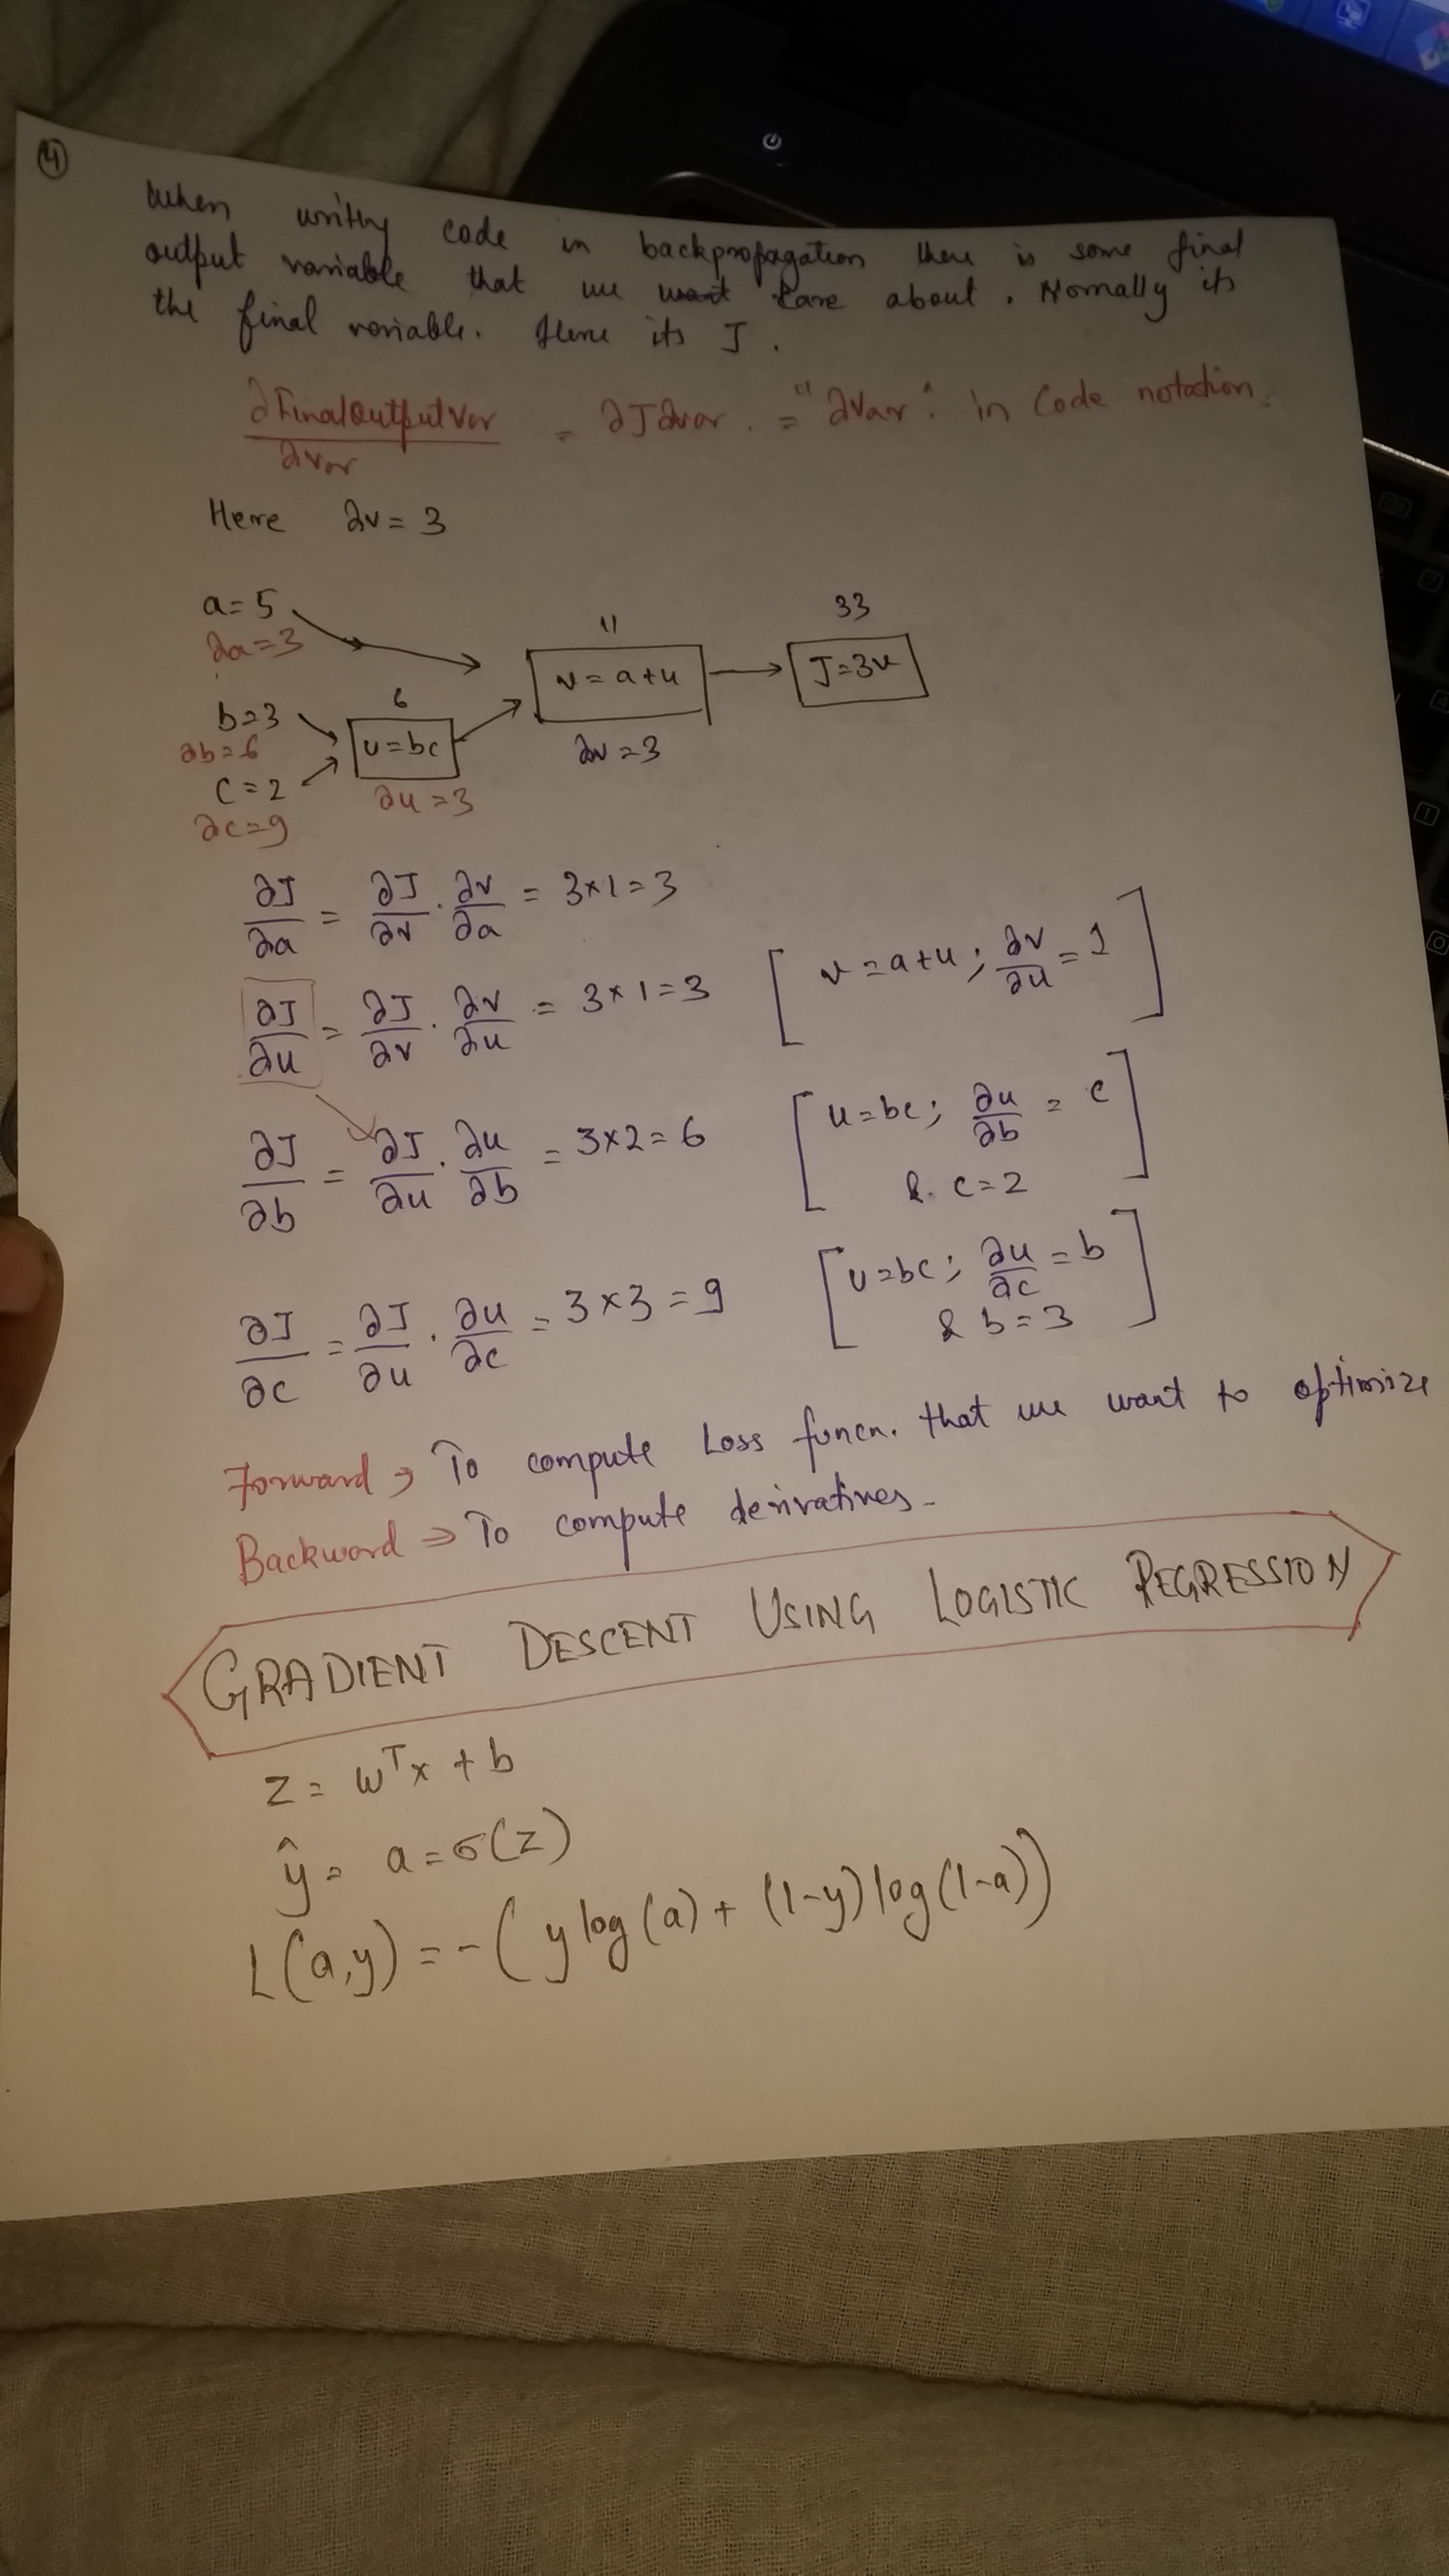 4
When writing code in backpropagation there is some final
output variable that we want care about. Normally its
the final variable. Here its J.
∂FinalOutputVar / ∂var = ∂J∂var. = "∂Var". in Code notation.
Here ∂v = 3
a = 5
∂a = 3
b = 3
∂b = 6
c = 2
∂c = 9
6
u = bc
∂u = 3
11
v = a + u
∂v = 3
33
J = 3v
∂J/∂a = ∂J/∂v · ∂v/∂a = 3×1 = 3
∂J/∂u = ∂J/∂v · ∂v/∂u = 3×1 = 3 [v = a + u; ∂v/∂u = 1]
∂J/∂b = ∂J/∂u · ∂u/∂b = 3×2 = 6 [u = bc; ∂u/∂b = c
& c = 2]
∂J/∂c = ∂J/∂u · ∂u/∂c = 3×3 = 9 [u = bc; ∂u/∂c = b
& b = 3]
Forward ⇒ To compute Loss funcn. that we want to optimize
Backward ⇒ To compute derivatives.
GRADIENT DESCENT USING LOGISTIC REGRESSION
z = wᵀx + b
ŷ = a = σ(z)
L(a,y) = -(y log(a) + (1-y) log(1-a))